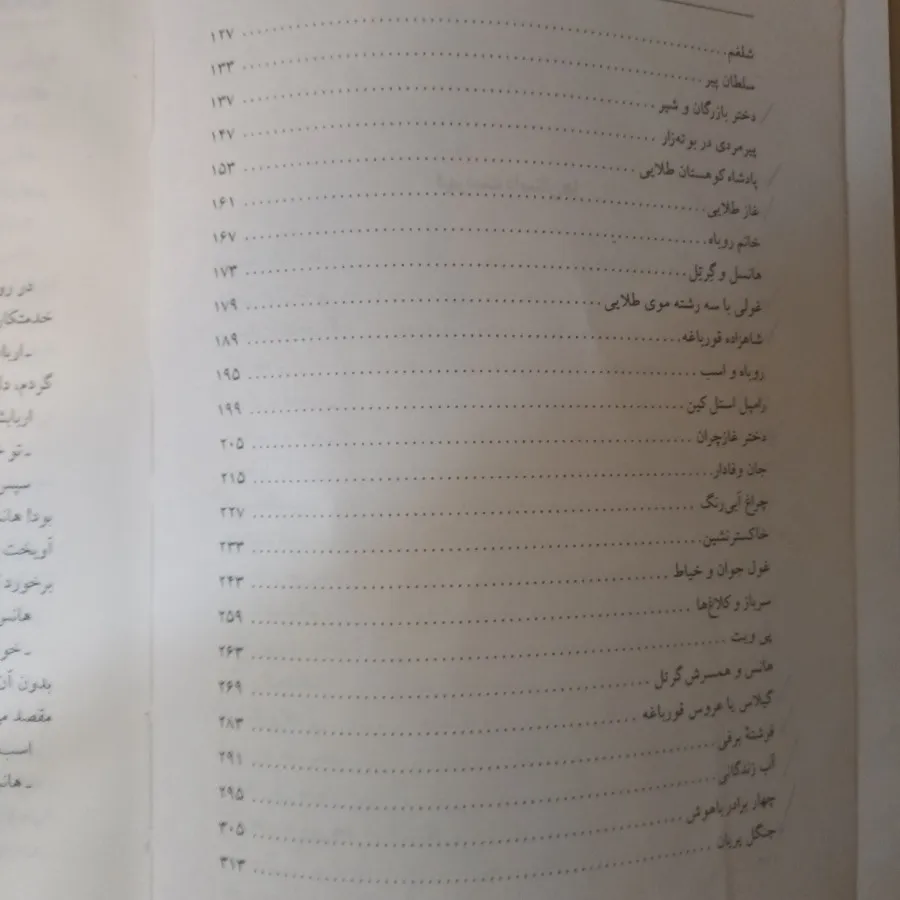 شلغم ........ ۱۲۷
سلطان پیر ........ ۱۳۳
دختر بازرگان و شیر ........ ۱۳۷
پیرمردی در بوته‌زار ........ ۱۴۷
پادشاه کوهستان طلایی ........ ۱۵۳
غاز طلایی ........ ۱۶۱
خانم روباه ........ ۱۶۷
هانسل و گِرتِل ........ ۱۷۳
غولی با سه رشته موی طلایی ........ ۱۷۹
شاهزاده قورباغه ........ ۱۸۹
روباه و اسب ........ ۱۹۵
رامپل استل کین ........ ۱۹۹
دختر غازچران ........ ۲۰۵
جان وفادار ........ ۲۱۵
چراغ آبی‌رنگ ........ ۲۲۷
خاکسترنشین ........ ۲۳۳
غول جوان و خیاط ........ ۲۴۳
سرباز و کلاغ‌ها ........ ۲۵۹
پی ویت ........ ۲۶۳
هانس و همسرش گرتل ........ ۲۶۹
گیلاس یا عروس قورباغه ........ ۲۸۳
فرشتهٔ برفی ........ ۲۹۱
آب زندگانی ........ ۲۹۵
چهار برادر باهوش ........ ۳۰۵
جنگل پریان ........ ۳۱۳
در رو
خدمتکار
ـ اربا
گردم، دا
اربابش
ـ تو
سپس
بود! هان
آویخت
برخورد
هانس
ـ خو
بدون آن
مقصد م
اسب
ـ هان